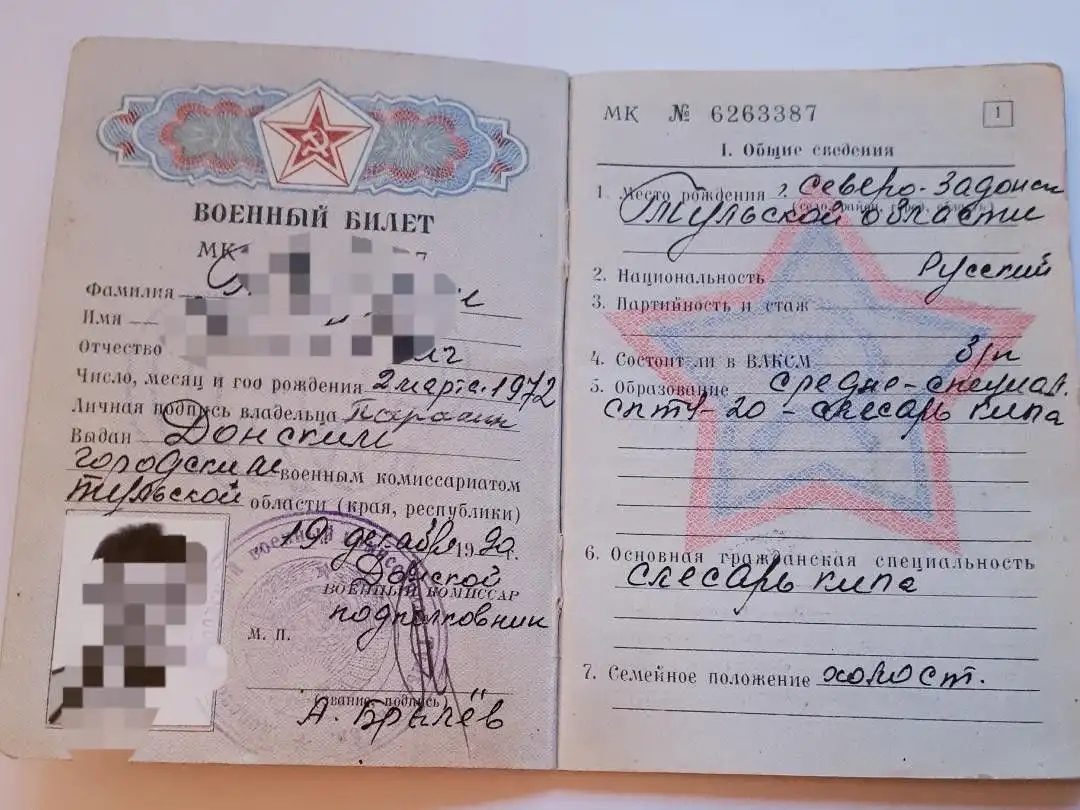 ВОЕННЫЙ БИЛЕТ
МК
Фамилия
Имя
Отчество
Число, месяц и год рождения 2 марта 1972
Личная подпись владельца
Выдан Донским
городским военным комиссариатом
Тульской области (края, республики)
19 декабря 1990 г.
Донской
ВОЕННЫЙ КОМИССАР
подполковник
М. П.
(звание, подпись)
А. Брылёв
МК № 6263387 1
I. Общие сведения
1. Место рождения г. Северо-Задонск
(село, район, город, область)
Тульской области
2. Национальность Русский
3. Партийность и стаж
4. Состоит ли в ВЛКСМ
5. Образование средне-специал.
СПТУ-20 - слесарь кипа
6. Основная гражданская специальность
слесарь кипа
7. Семейное положение холост.